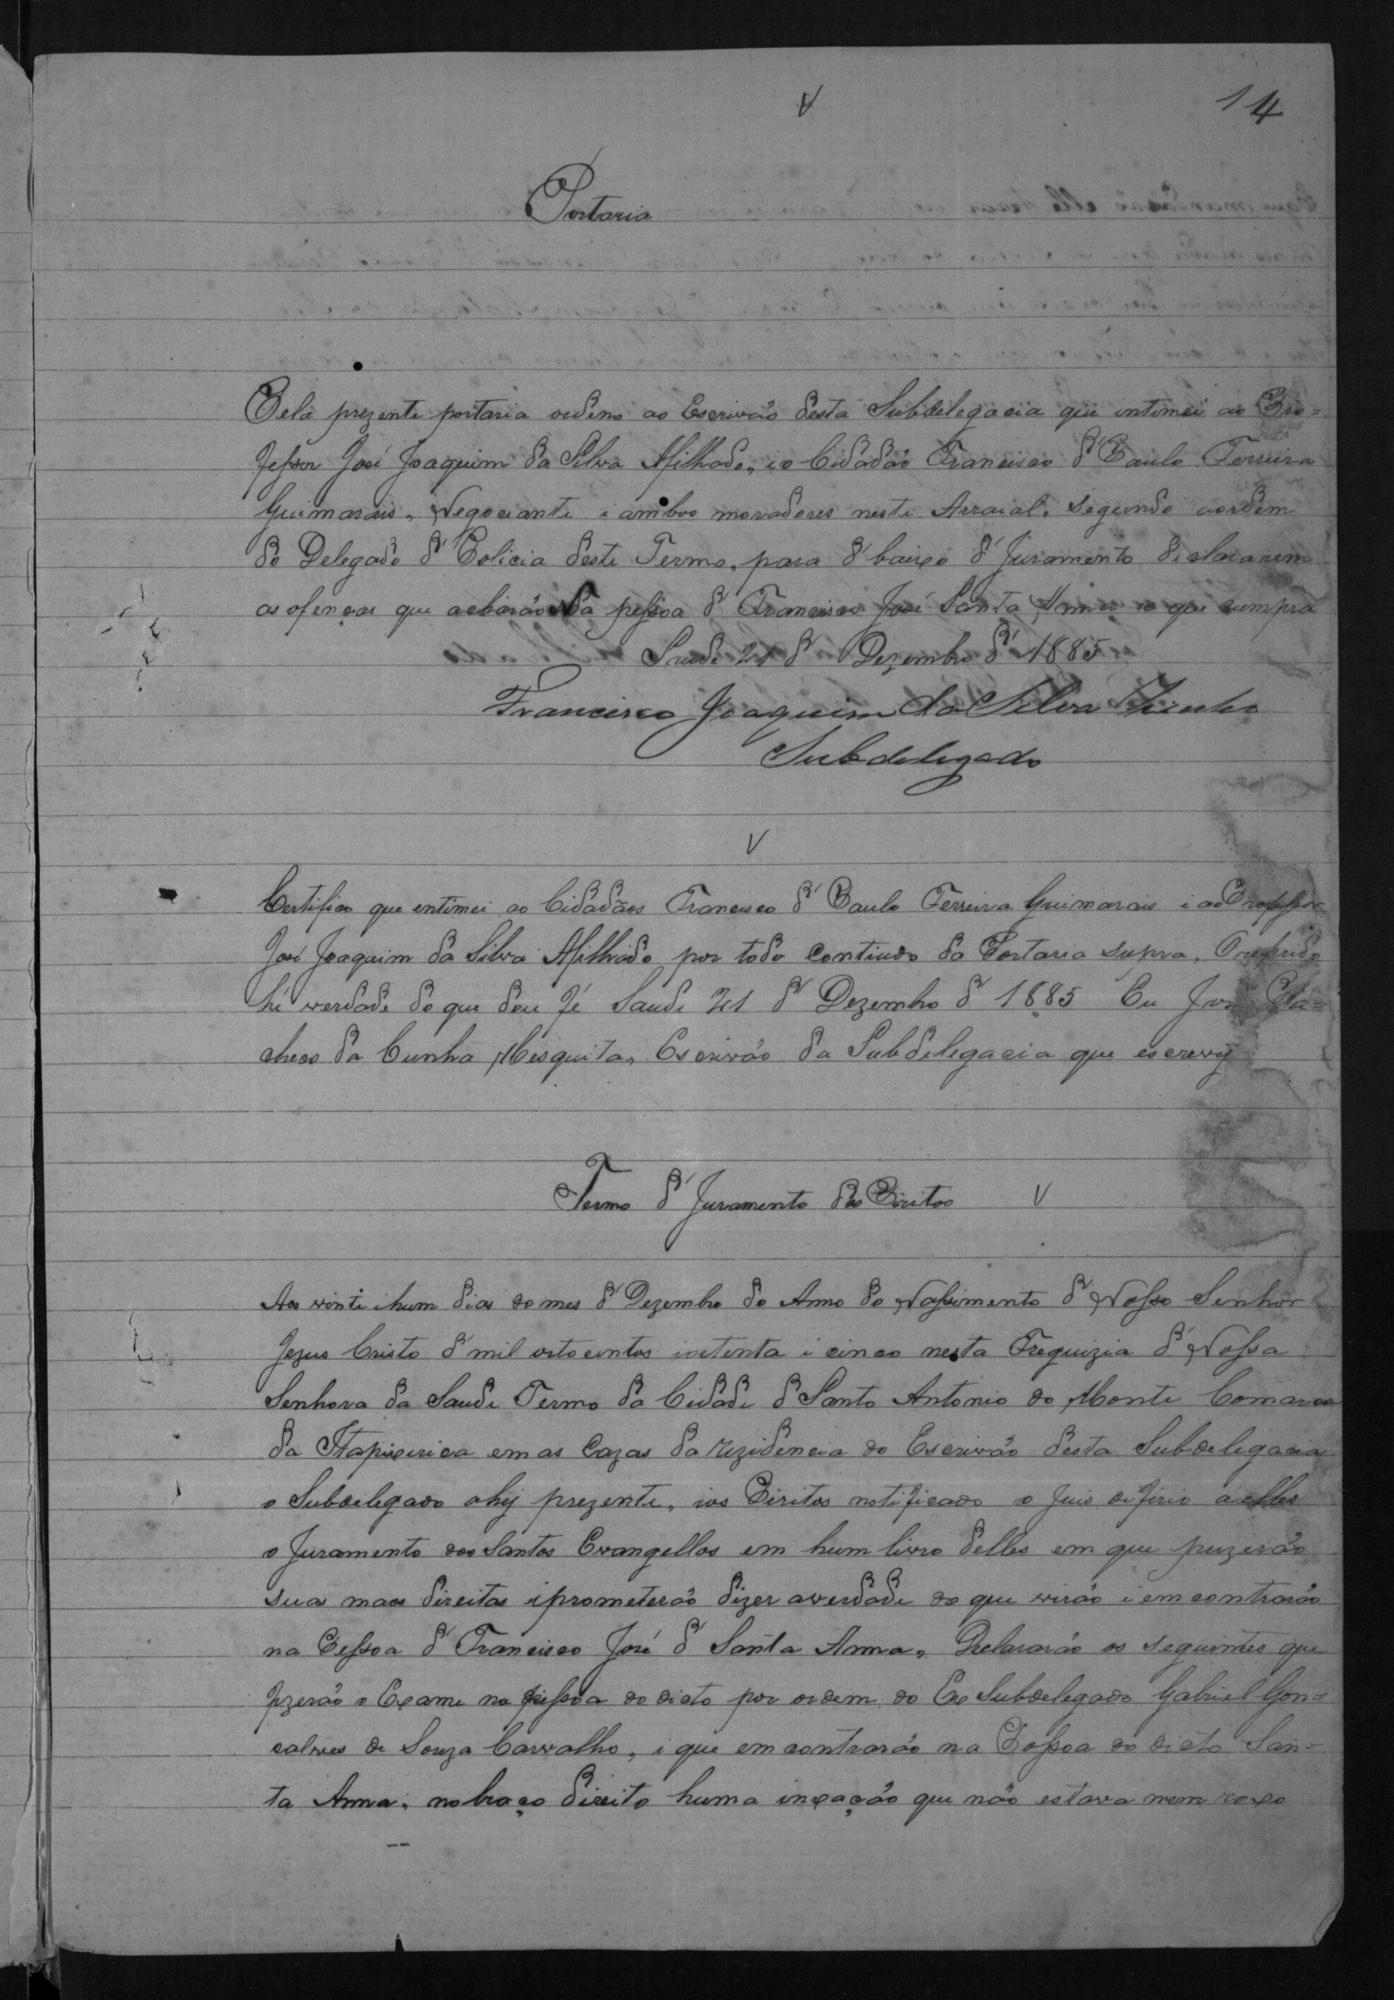 14
Portaria
Pela prezente portaria ordeno ao Escrivão desta Subdelegacia que intimei ao Pro=
fessor José Joaquim da Silva Milhado, i o Cidadão Francisco d' Paulo Ferreira
Guimarais, Negociante i ambos moradores neste Arraial, segundo aordem
do Delegado d' Policia deste Termo, para d' baixo d' Juramento declararem
as ofenças que acharão na pessoa d' Francisco José Santa Anna o que cumpra
Saude 21 d' Dezembro d' 1885
Francisco Joaquim da Silva
Subdelegado
Certifico que entimei ao Cidadãos Francisco d' Paulo Ferreira Guimarais i ao Professor
José Joaquim da Silva Milhado por todo contiudo da Portaria supra, Oreferido
hé verdade do que dou fé Saude 21 d' Dezembro d' 1885 Eu José Pa=
checo da Cunha Mesquita, Escrivão da Subdelegacia que escrevy
Termo d' Juramento dos Piritos
Aos vinti ihum dias do mes d' Dezembro do Anno do Nassimento d' Nosso Senhor
Jezus Cristo d' mil oitocentos ioitenta i cinco nesta Freguizia d' Nossa
Senhora da Saude Termo da Cidade d' Santo Antonio do Monte Comarca
da Itapicirica em as Cazas da rezidencia do Escrivão desta Subdelegacia
o Subdelegado ahy prezente, ios Piritos notificado o Juis difirio aelles
o Juramento dos Santos Evangellos em hum livro delles em que puzerão
sua maos direitas iprometerão dizer averdade do que virão i em contrarão
na Pessoa d' Francisco José d' Santa Anna, Declararão os seguintes que
fzerão o Exame na pessoa do dicto por ordem do Ex Subdelegado Gabriel Gon=
calves de Souza Carvalho, i que em contrarão na Pessoa do dicto San=
ta Anna, nobraço direito huma inxação que não estava nem roxo